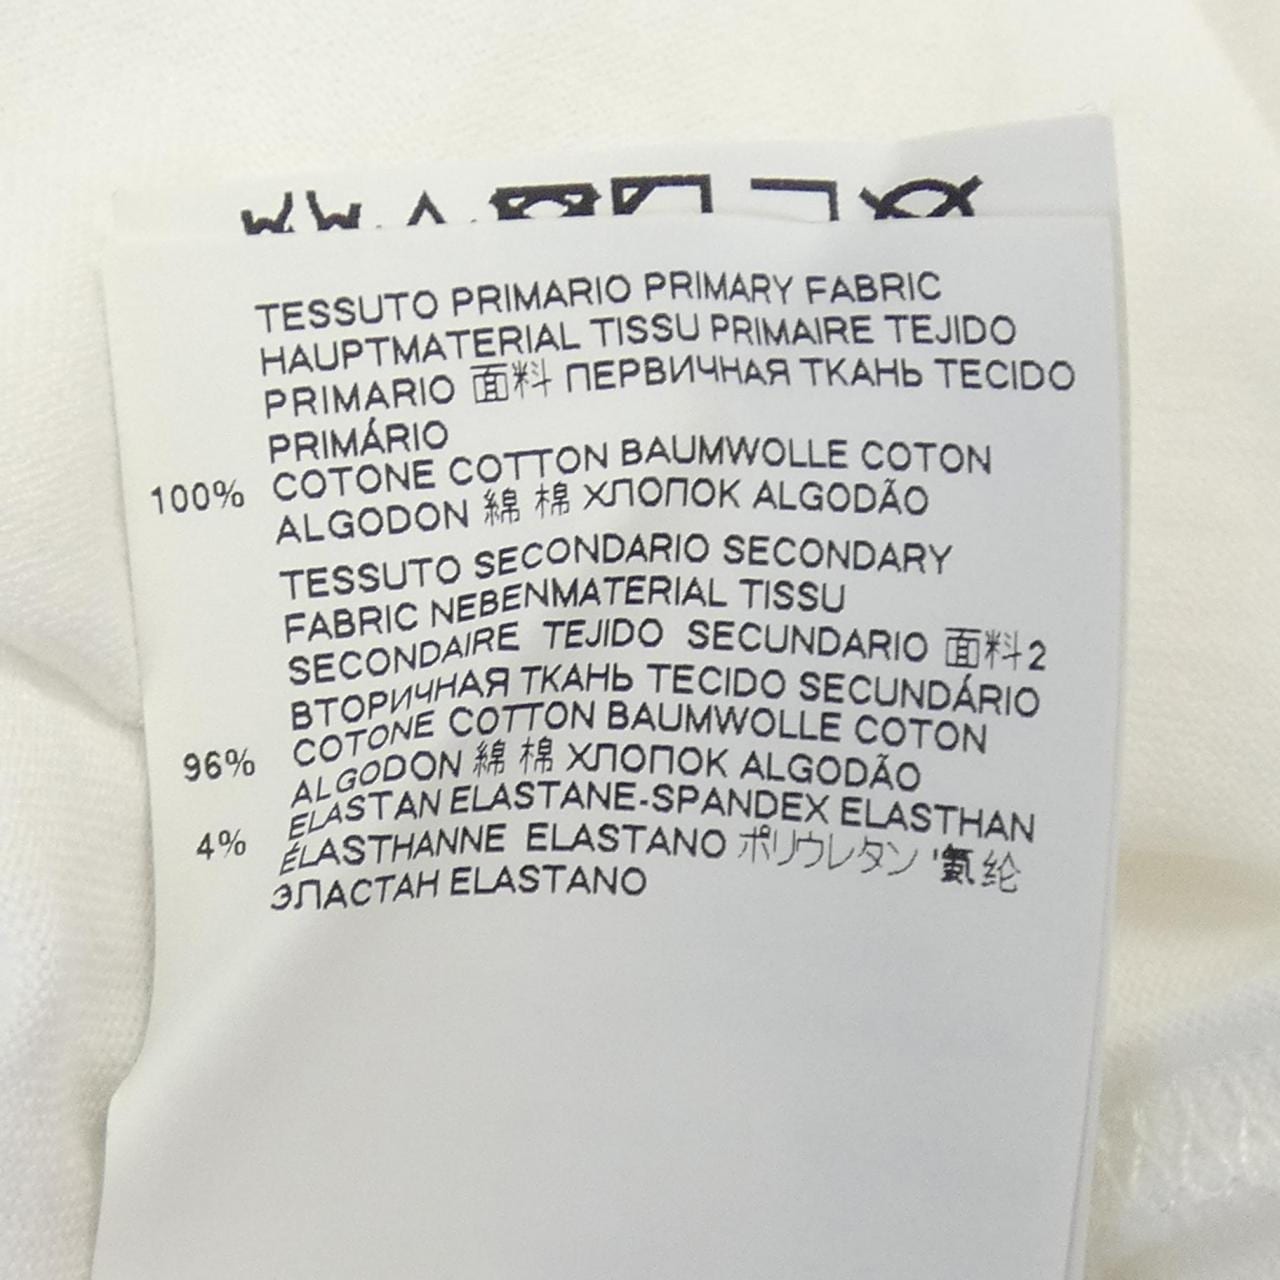 TESSUTO PRIMARIO PRIMARY FABRIC
HAUPTMATERIAL TISSU PRIMAIRE TEJIDO
PRIMARIO 面料 ПЕРВИЧНАЯ ТКАНЬ TECIDO
PRIMÁRIO
100% COTONE COTTON BAUMWOLLE COTON
ALGODON 綿 棉 ХЛОПОК ALGODÃO
TESSUTO SECONDARIO SECONDARY
FABRIC NEBENMATERIAL TISSU
SECONDAIRE TEJIDO SECUNDARIO 面料2
ВТОРИЧНАЯ ТКАНЬ TECIDO SECUNDÁRIO
96% COTONE COTTON BAUMWOLLE COTON
ALGODON 綿 棉 ХЛОПОК ALGODÃO
4% ELASTAN ELASTANE-SPANDEX ELASTHAN
ÉLASTHANNE ELASTANO ポリウレタン '氨纶
ЭЛАСТАН ELASTANO